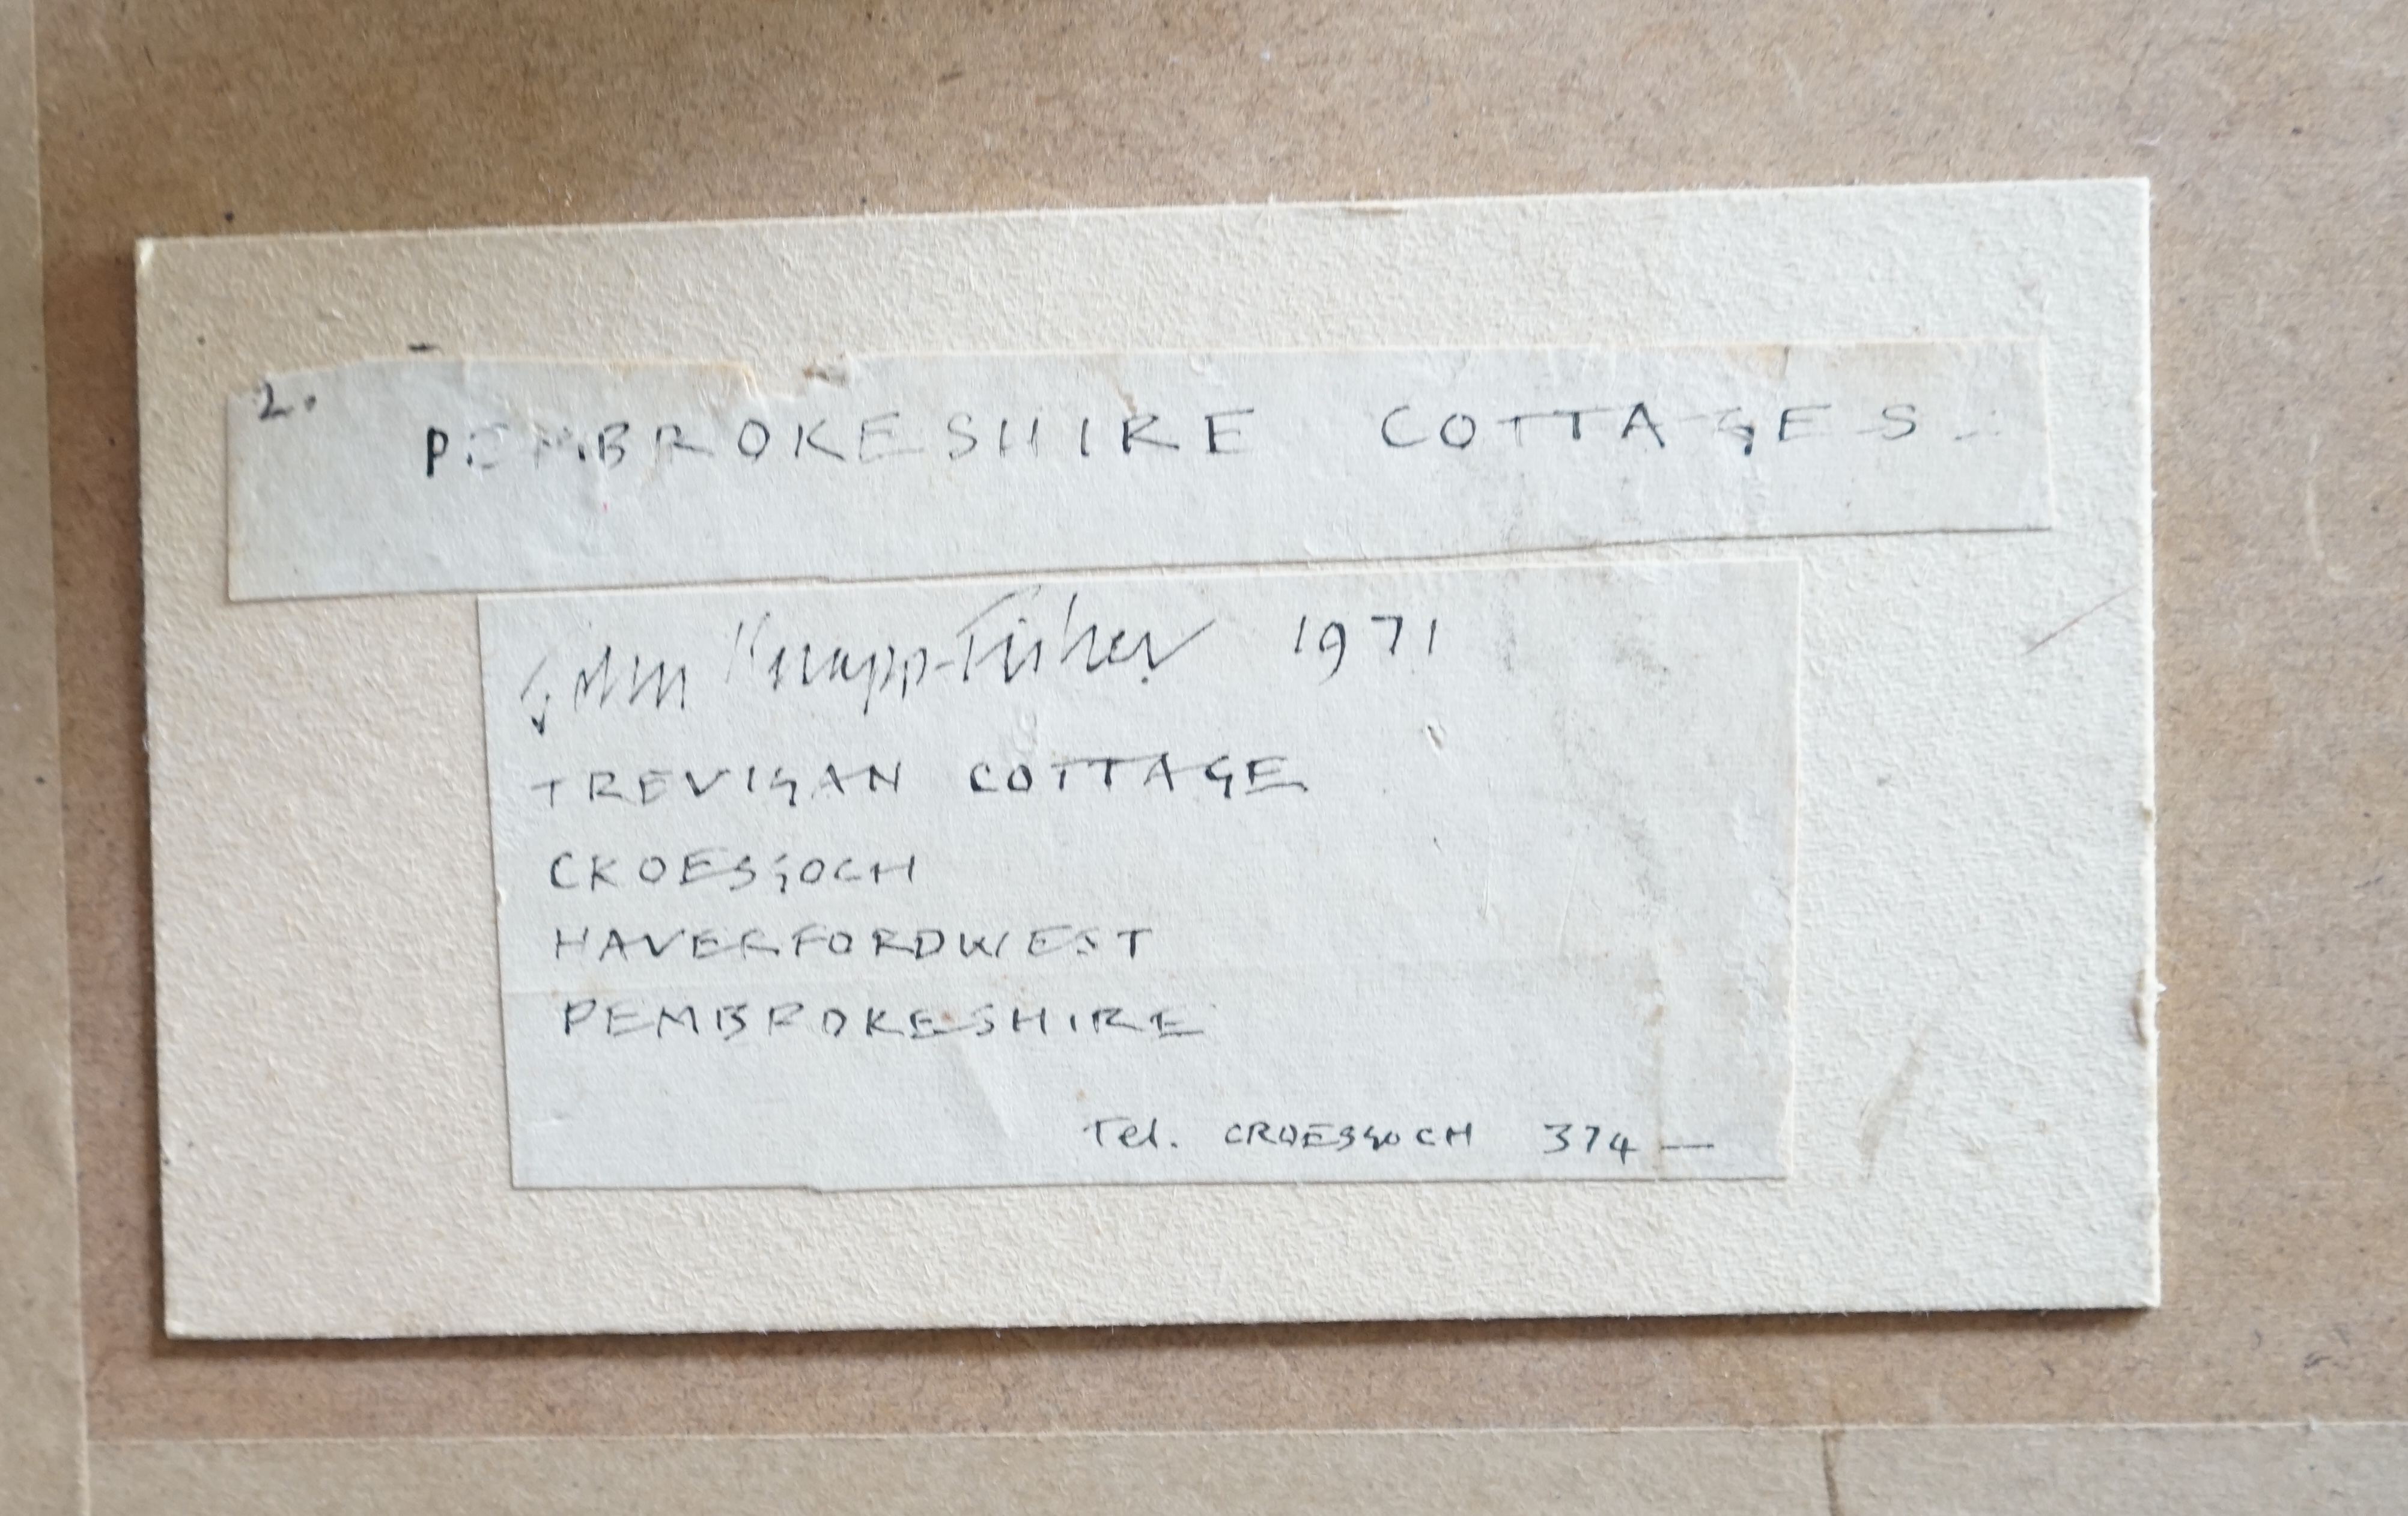 2.
PEMBROKESHIRE COTTAGES.
John Knapp-Fisher 1971
TREVIGAN COTTAGE
CROESGOCH
HAVERFORDWEST
PEMBROKESHIRE
Tel. CROESGOCH 374 —